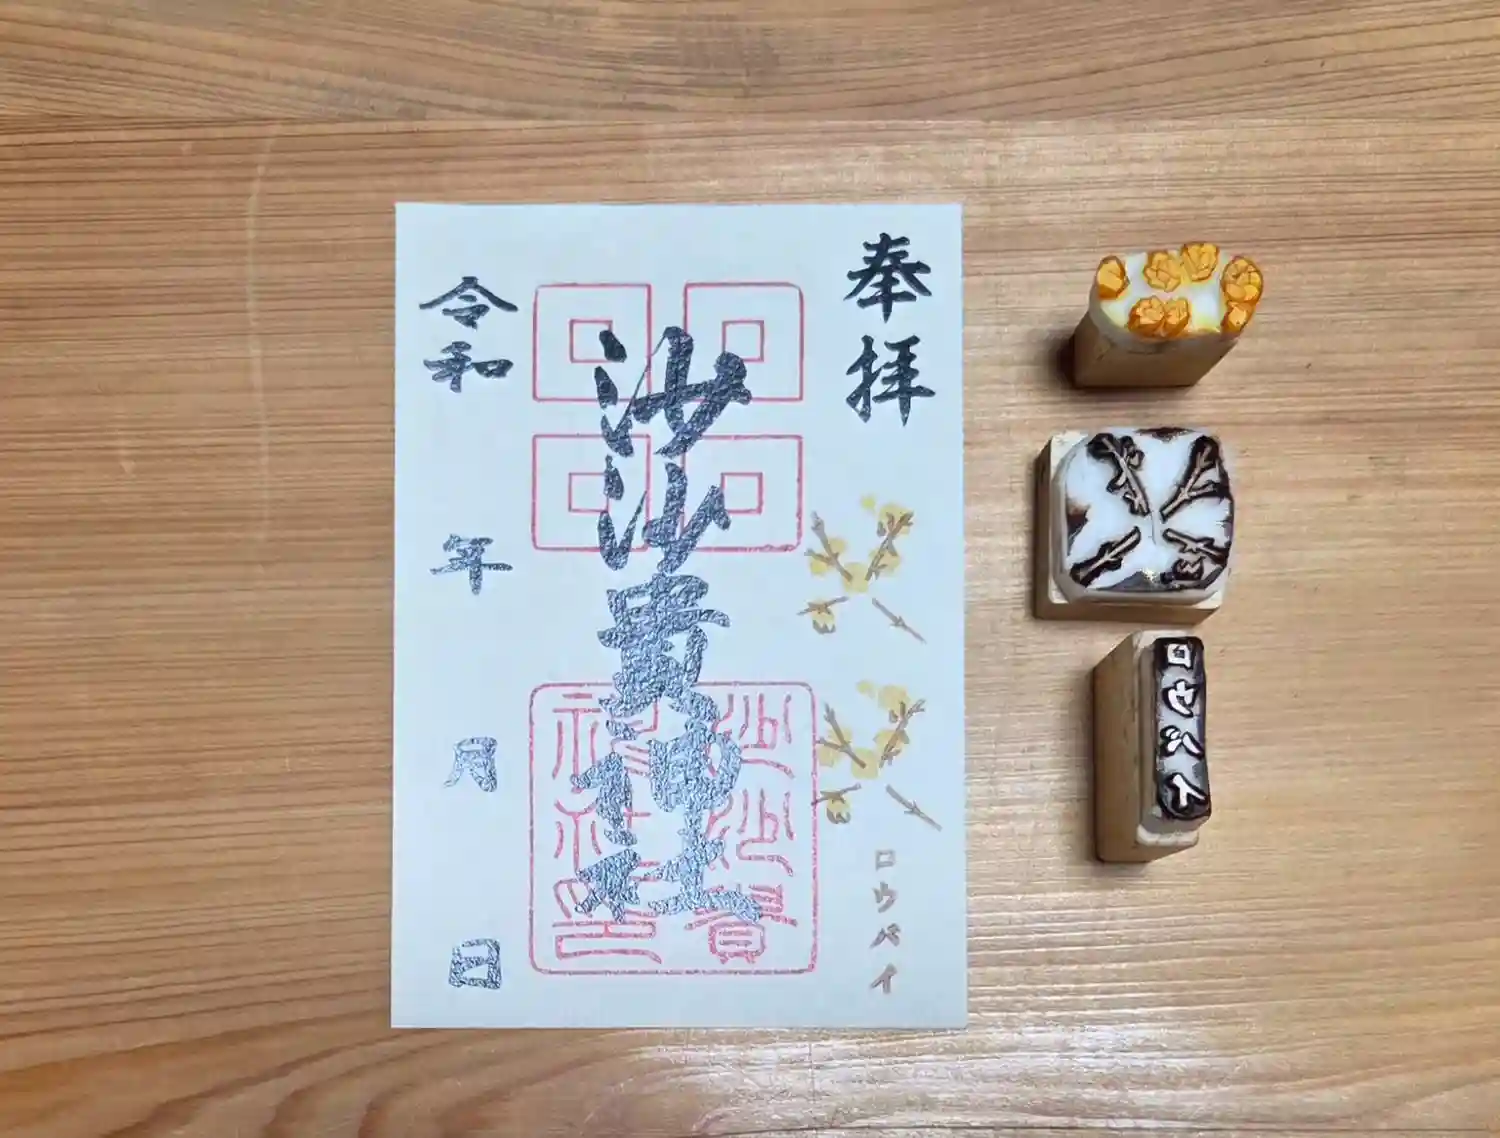 奉拝
ロウバイ
沙沙貴神社
沙沙貴
神社印
令和 年 月 日
ロウバイ